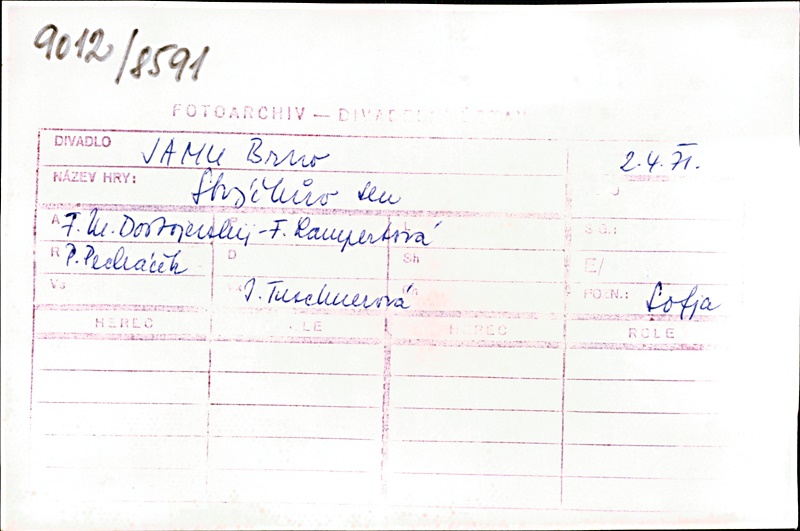 9012/8591
FOTOARCHIV — DIVADELNÍ ÚSTAV
DIVADLO JAMU Brno 2.4.71.
NÁZEV HRY: Strýčkův sen
A F. M. Dostojevskij - F. Rampertová S G.:
R P. Pecháček D Sh E/
Vs J. Tuschnerová POZN.: Sofja
HEREC ROLE HEREC ROLE